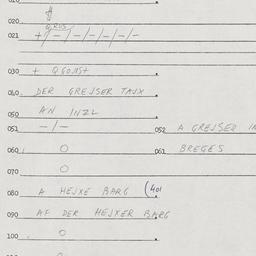 020
QRUS
021 +/-/-/-/-/-/-
030 + QGONST
040 DER GREJSER TAJX
050 AN INZL
051 -/- 052 A GREJSER
060 0 061 BREGES
070 0
080 A HEJXE BARG (401
090 AF DER HEJXER BARG
100 0